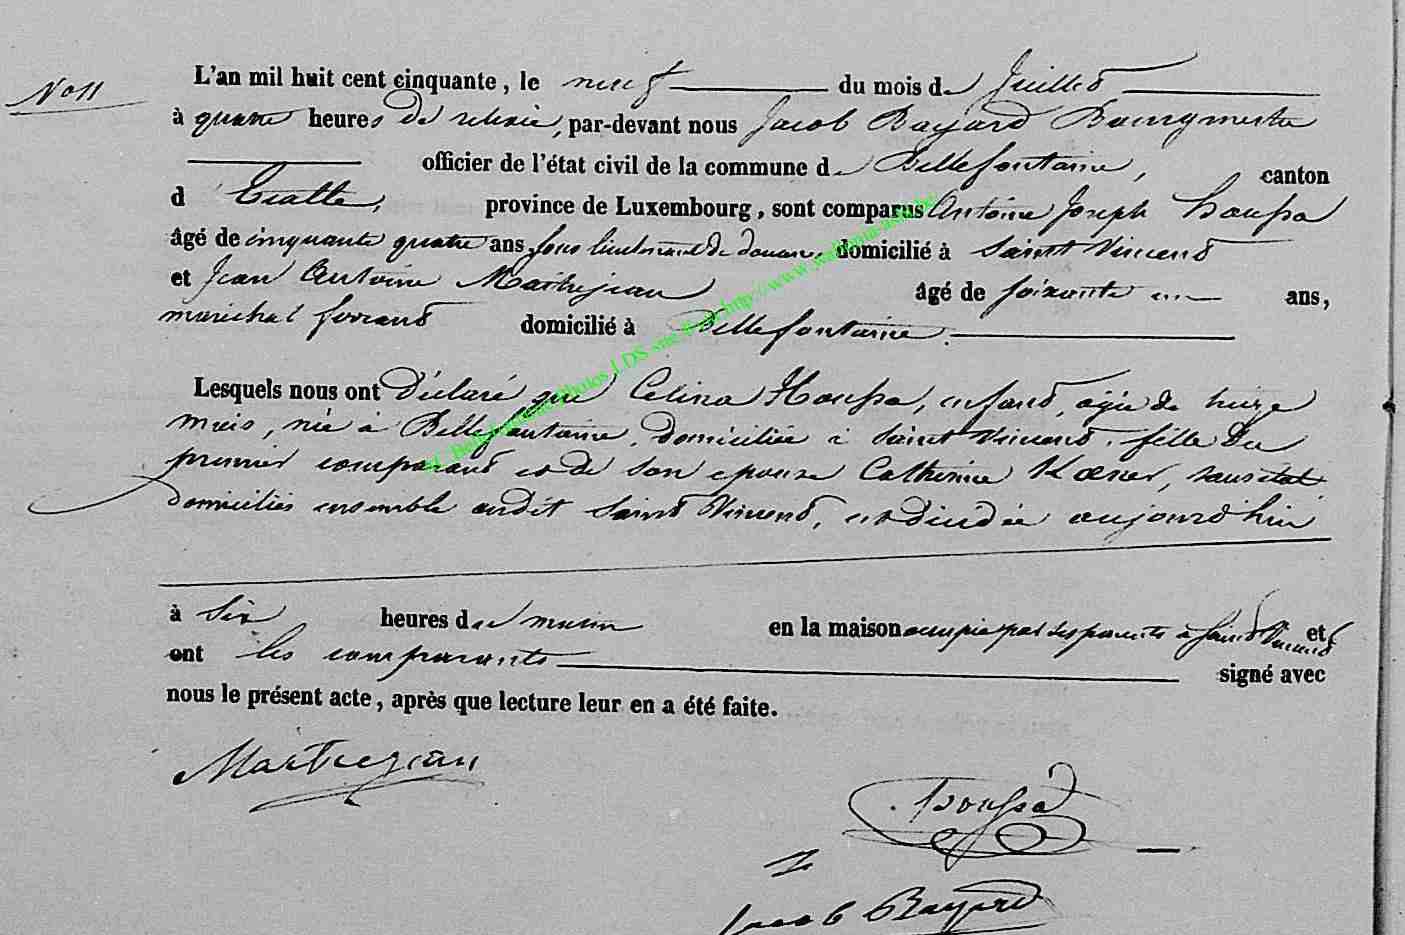 N° 11
L'an mil huit cent cinquante, le neuf du mois de Juillet
à quatre heures de relevée, par-devant nous Jacob Bayard Bourgmestre
officier de l'état civil de la commune de Bellefontaine, canton
d Etalle, province de Luxembourg, sont comparus Antoine Joseph Houssa
âgé de cinquante quatre ans sous lieutenant de douane, domicilié à Saint Vincent
et Jean Antoine Maitrejean âgé de soixante un ans,
maréchal ferrand domicilié à Bellefontaine.
Lesquels nous ont Déclaré que Celina Houssa, enfant, agée de
mois, née à Bellefontaine, domiciliée à Saint Vincent, fille du
premier comparant et de son epouse Catherine sans etat
domiciliés ensemble audit Saint Vincent, est décédée aujourd'hui
à Six heures du matin en la maison occupée par ses parents à Saint Vincent et
ont les comparants signé avec
nous le présent acte, après que lecture leur en a été faite.
Maitrejean
Houssa
Jacob Bayard